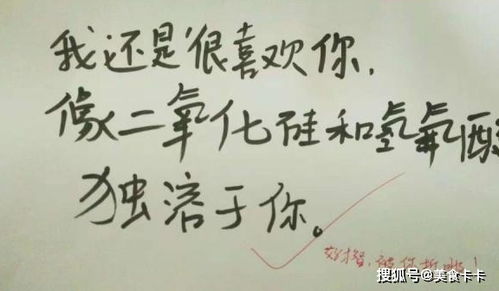 我还是很喜欢你，
像二氧化硅和氢氟酸
独溶于你。
搜狐号@美食卡卡